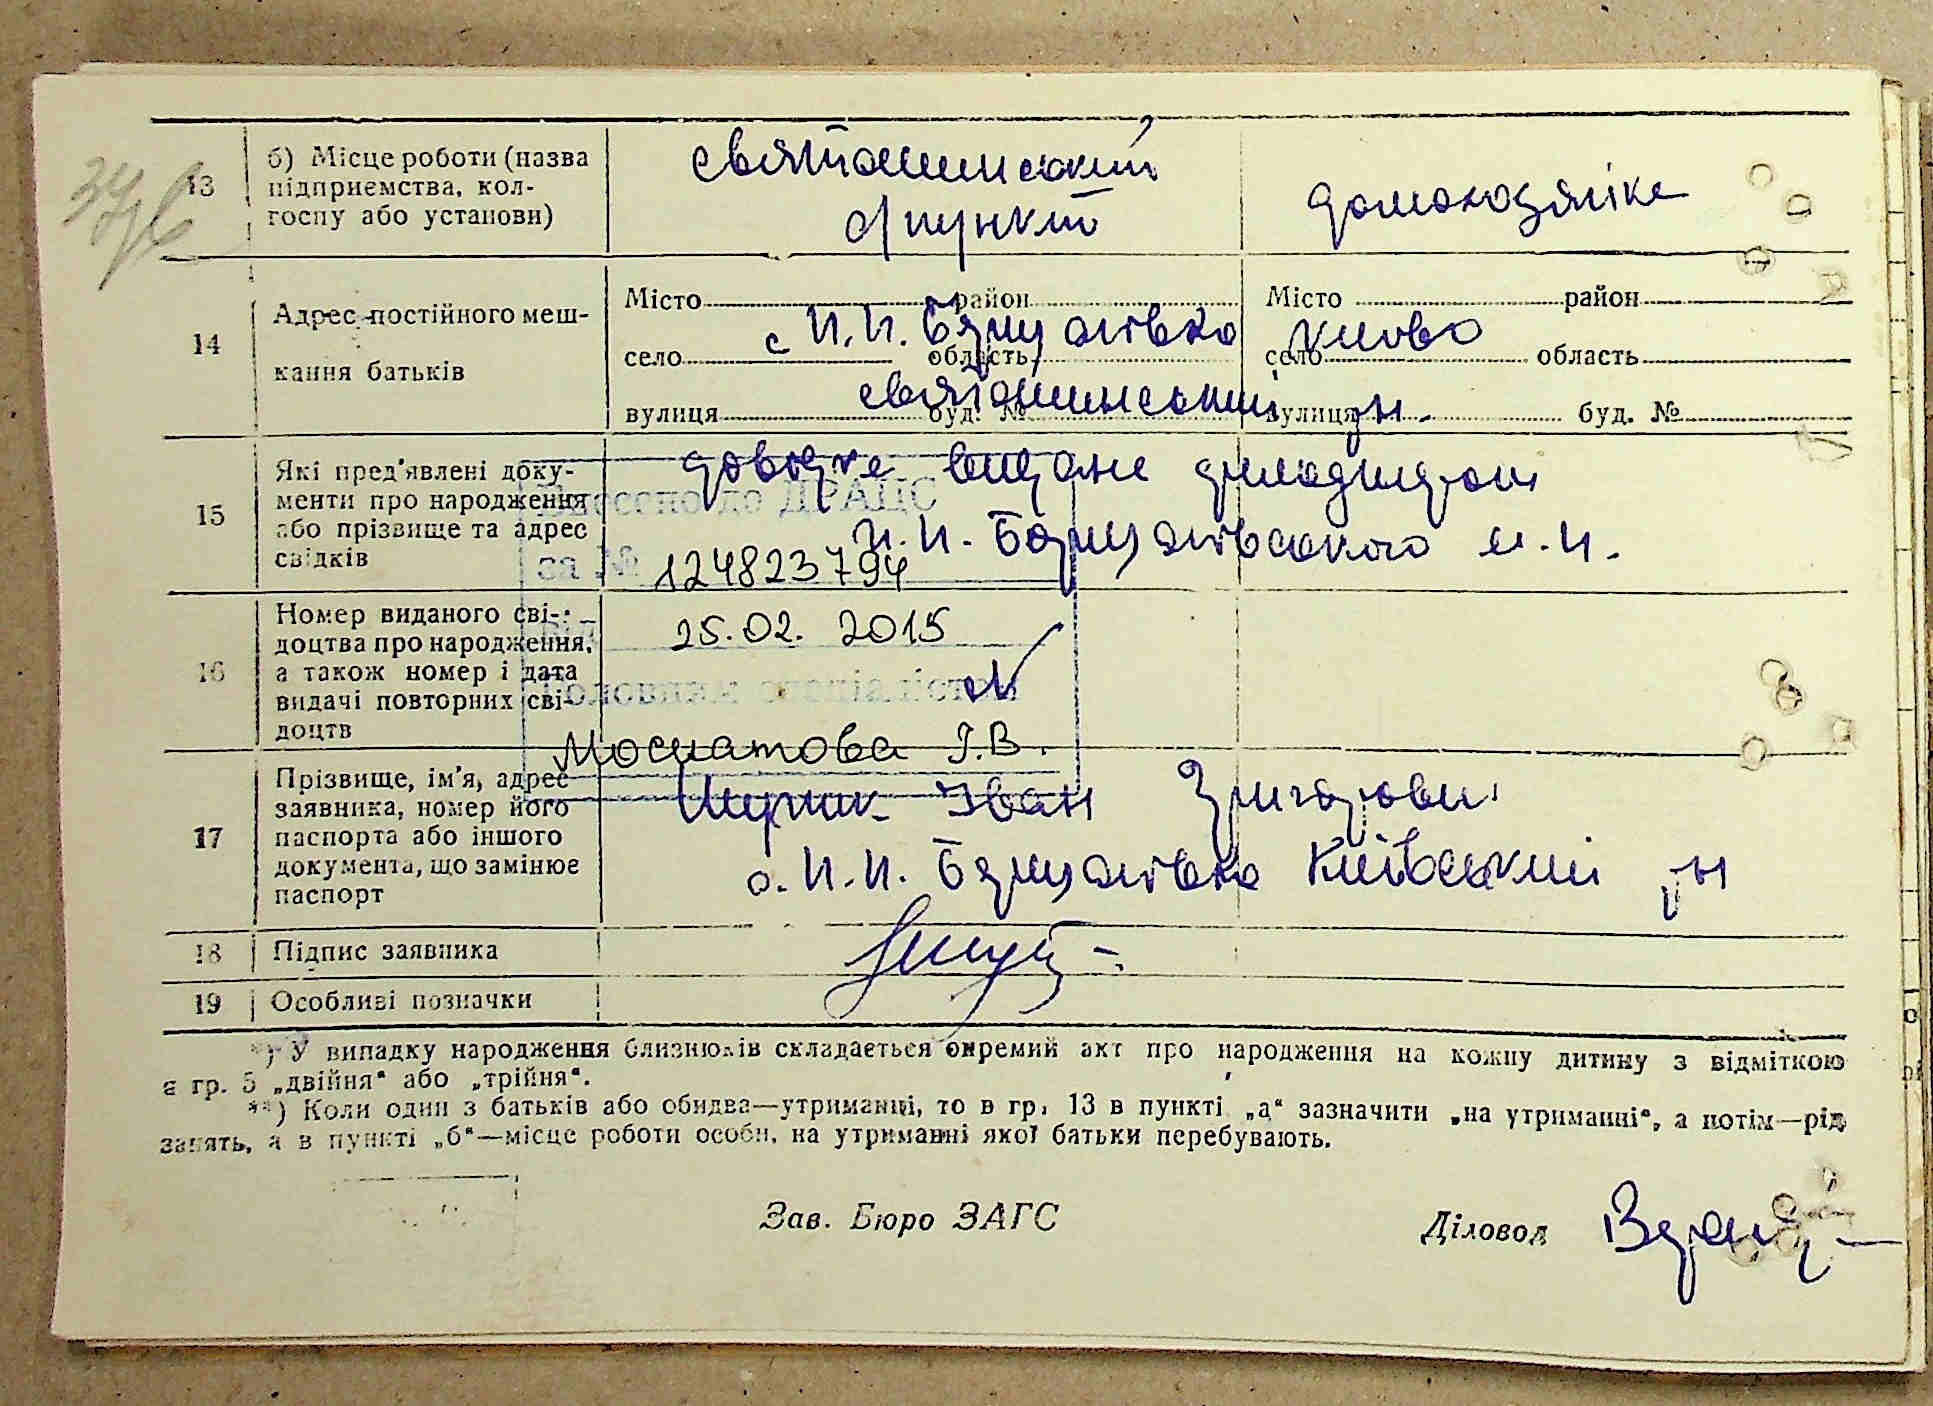 13
б) Місце роботи (назва підприємства, кол-
госпу або установи)
святошинський
пункт
домохозяйка
14
Адрес постійного меш-
кання батьків
Місто район
с П.П. Борщагівка
село область
Святошинський
вулиця буд. №
Місто район
Києво
село область
р-н.
вулиця буд. №
15
Які пред'явлені доку-
менти про народження
або прізвище та адрес
свідків
довідка видана
П.П. Борщагівського
Внесено до ДРАЦС
за № 124823794
16
Номер виданого сві-
доцтва про народження,
а також номер і дата
видачі повторних сві-
доцтв
від 25.02.2015
Головний спеціаліст
І.В.
17
Прізвище, ім'я, адрес
заявника, номер його
паспорта або іншого
документа, що замінює
паспорт
Іван Григорович
с. П.П. Борщагівка Київський р-н
18
Підпис заявника
19
Особливі позначки
*) У випадку народження близнюків складається окремий акт про народження на кожну дитину з відміткою
в гр. 5 „двійня“ або „трійня“.
**) Коли один з батьків або обидва—утриманці, то в гр. 13 в пункті „а“ зазначити „на утриманні“, а потім—рід
занять, а в пункті „б“—місце роботи особи, на утриманні якої батьки перебувають.
Зав. Бюро ЗАГС
Діловод